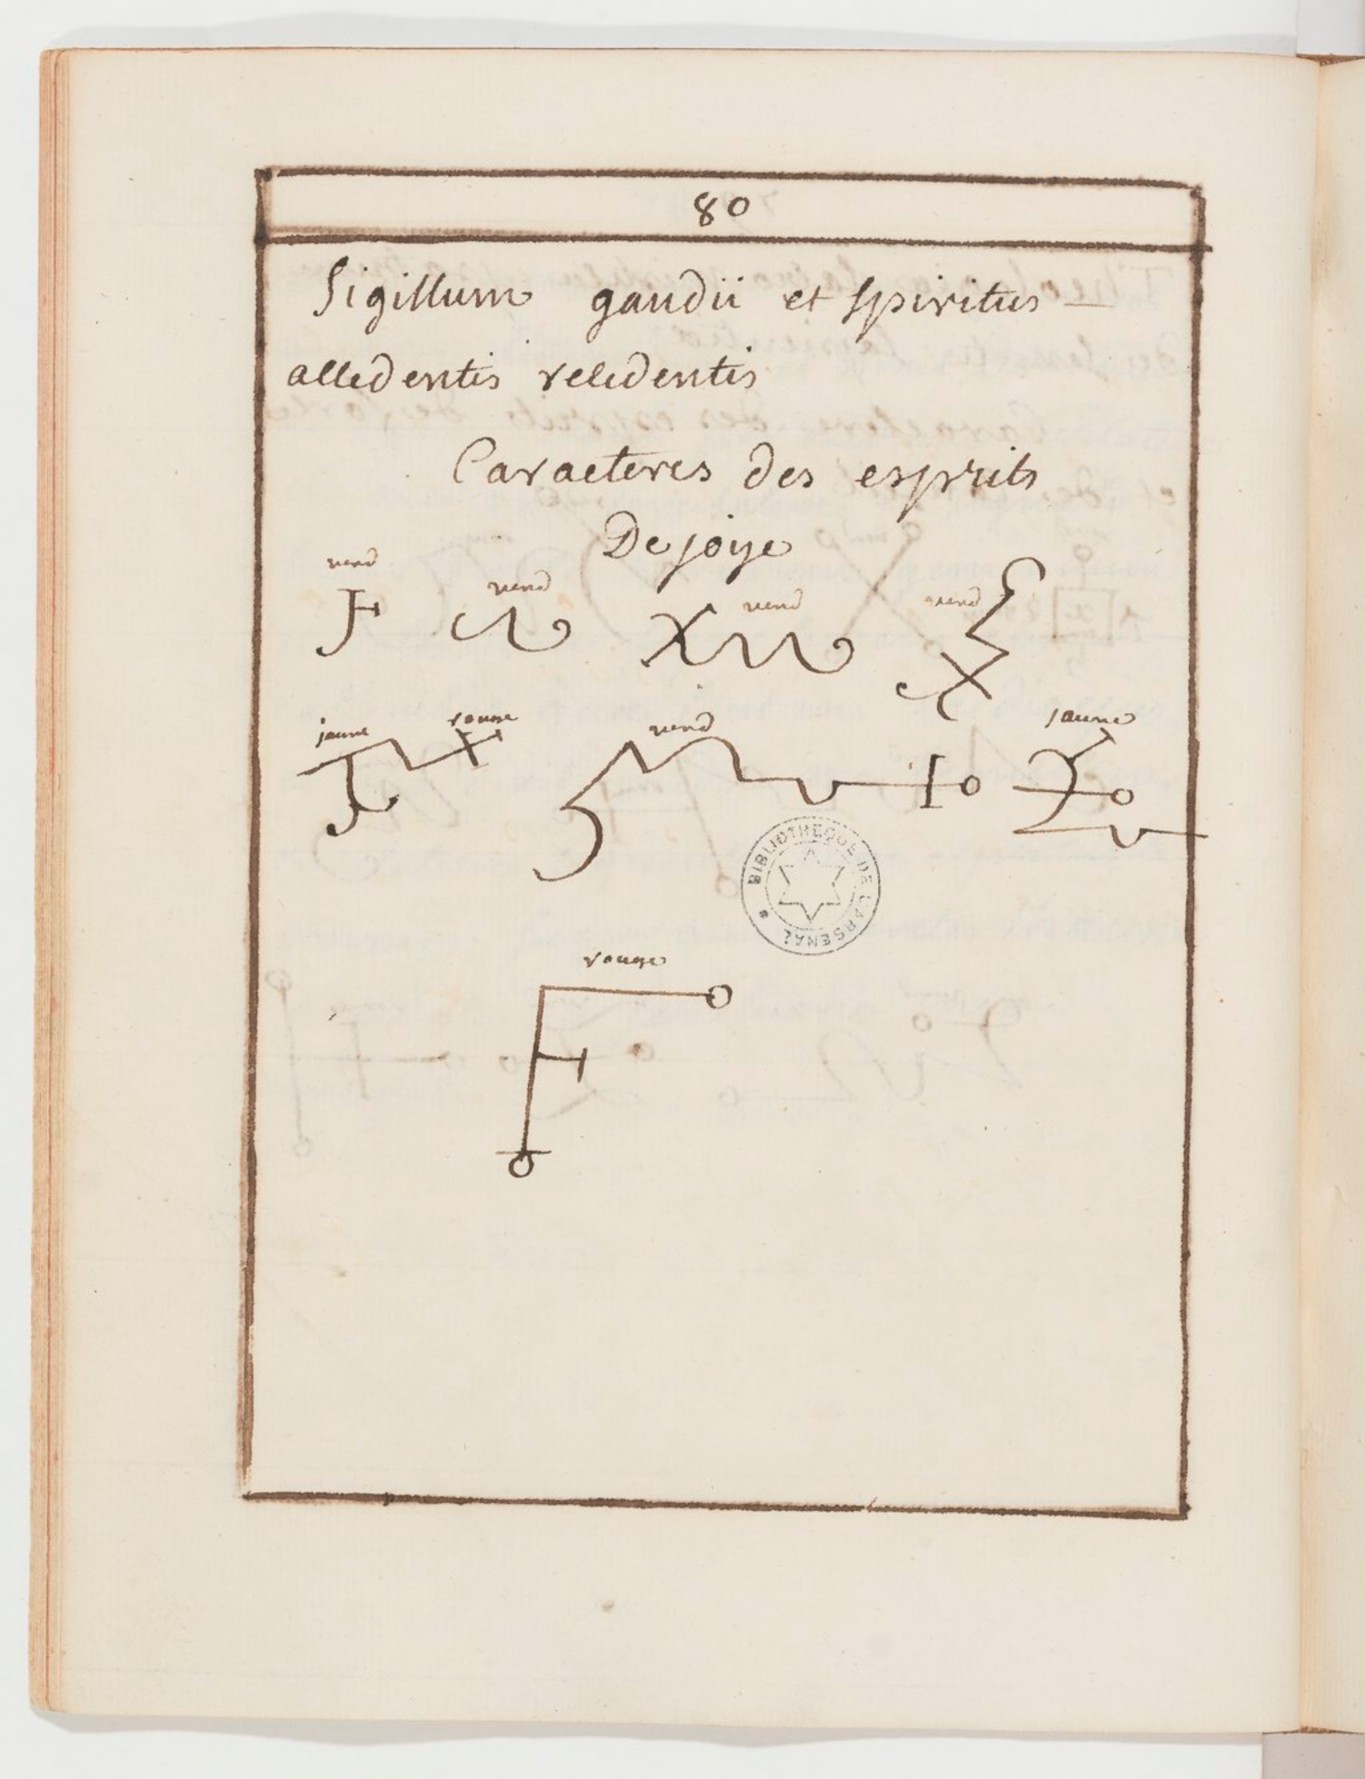 80
Sigillum gaudii et spiritus
alledentis veledentis
Caracteres des esprits
De joye
verd
verd
verd
verd
jaune
rouge
verd
jaune
BIBLIOTHEQUE DE L'ARSENAL
rouge